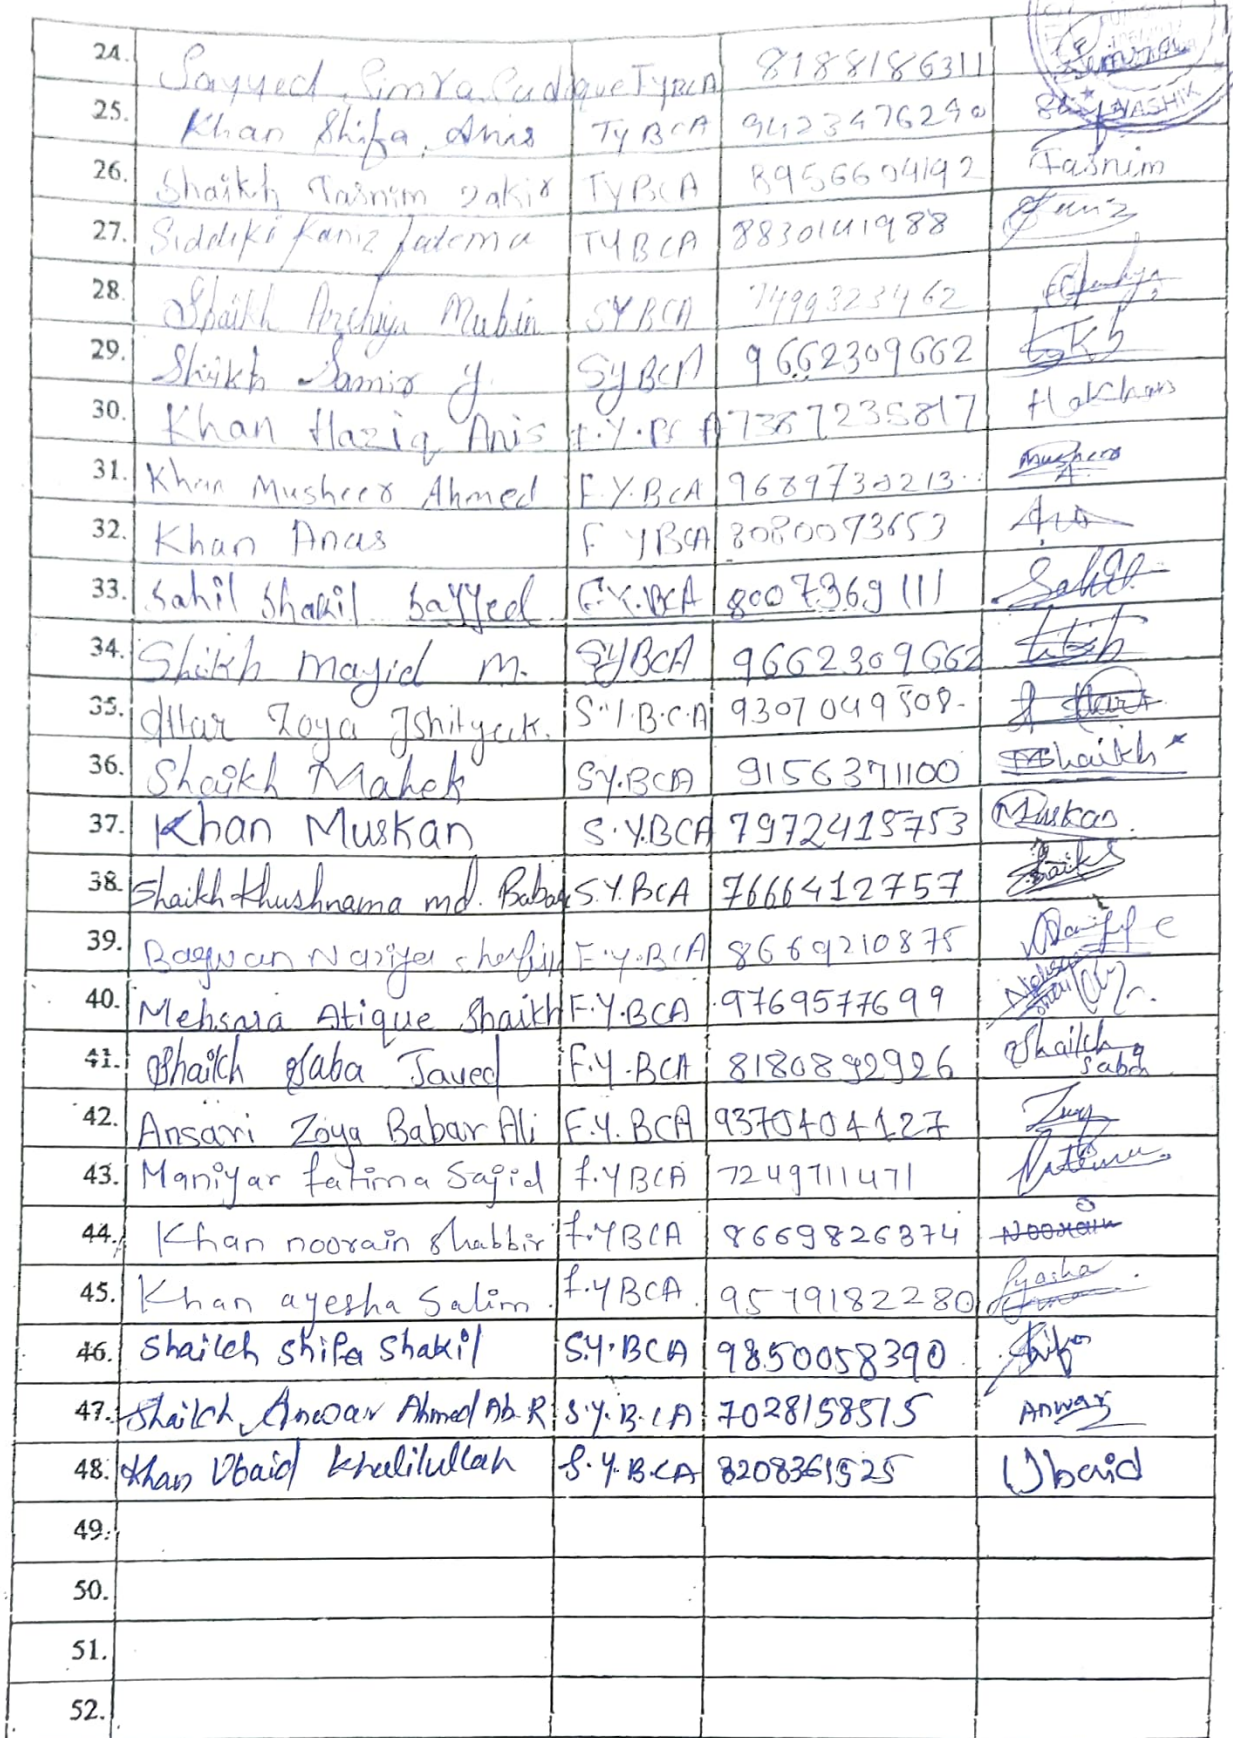 24. Sayyed Simra Sadique TYBCA 8188186311
NASHIK
25. Khan Shifa Anis TyBCA 9423476290
26. Shaikh Tasnim Zakir TYBCA 8956604192 Tasnim
27. Siddiki Kaniz fatema TYBCA 8830141988 Kaniz
28. Shaikh Arshiya Mubin SYBCA 7499323462
29. Shaikh Samir y. SyBCA 9662309662
30. Khan Haziq Anis F.Y.BCA 7387235817 HaKhan
31. Khan Musheer Ahmed F.Y.BCA 9689730213 Musheer A.
32. Khan Anas F YBCA 8080073653
33. Sahil Shakil Sayyed F.Y.BCA 8007369111 Sahil
34. Shaikh Majid M. SYBCA 9662309662
35. Attar Zoya Ishtiyak. S.Y.B.C.A 9307049508 Attar
36. Shaikh Mahek SY.BCA 9156371100 MShaikh
37. Khan Muskan S.Y.BCA 7972415753 Muskan
38. Shaikh Khushnama md. Babar S.Y.BCA 7666412757 Shaikh
39. Bagwan Naziya F.Y.BCA 8669210875
40. Mehsara Atique Shaikh F.Y.BCA 9769577699
41. Shaikh Saba Javed F.Y.BCA 8180892926 Shaikh Saba
42. Ansari Zoya Babar Ali F.Y.BCA 9370404127
43. Maniyar fatima Sajid f.yBCA 7249711471
44. Khan noorain Shabbir f.yBCA 8669826374 Noorain
45. Khan ayesha Salim. f.yBCA. 9579182280 Ayesha
46. Shaikh Shifa Shakil S.Y.BCA 9850058390
47. Shaikh Anwar Ahmed Ab. R S.Y.B.CA 7028158515 Anwar
48. Khan Ubaid Khalilullah S.Y.B.CA 8208361525 Ubaid
49.
50.
51.
52.